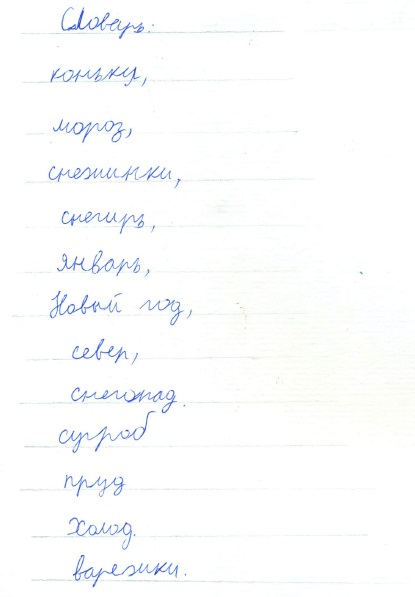 Словарь.
коньки,
мороз,
снежинки,
снегирь,
январь,
Новый год,
север,
снегопад.
сугроб
пруд
холод.
варежки.